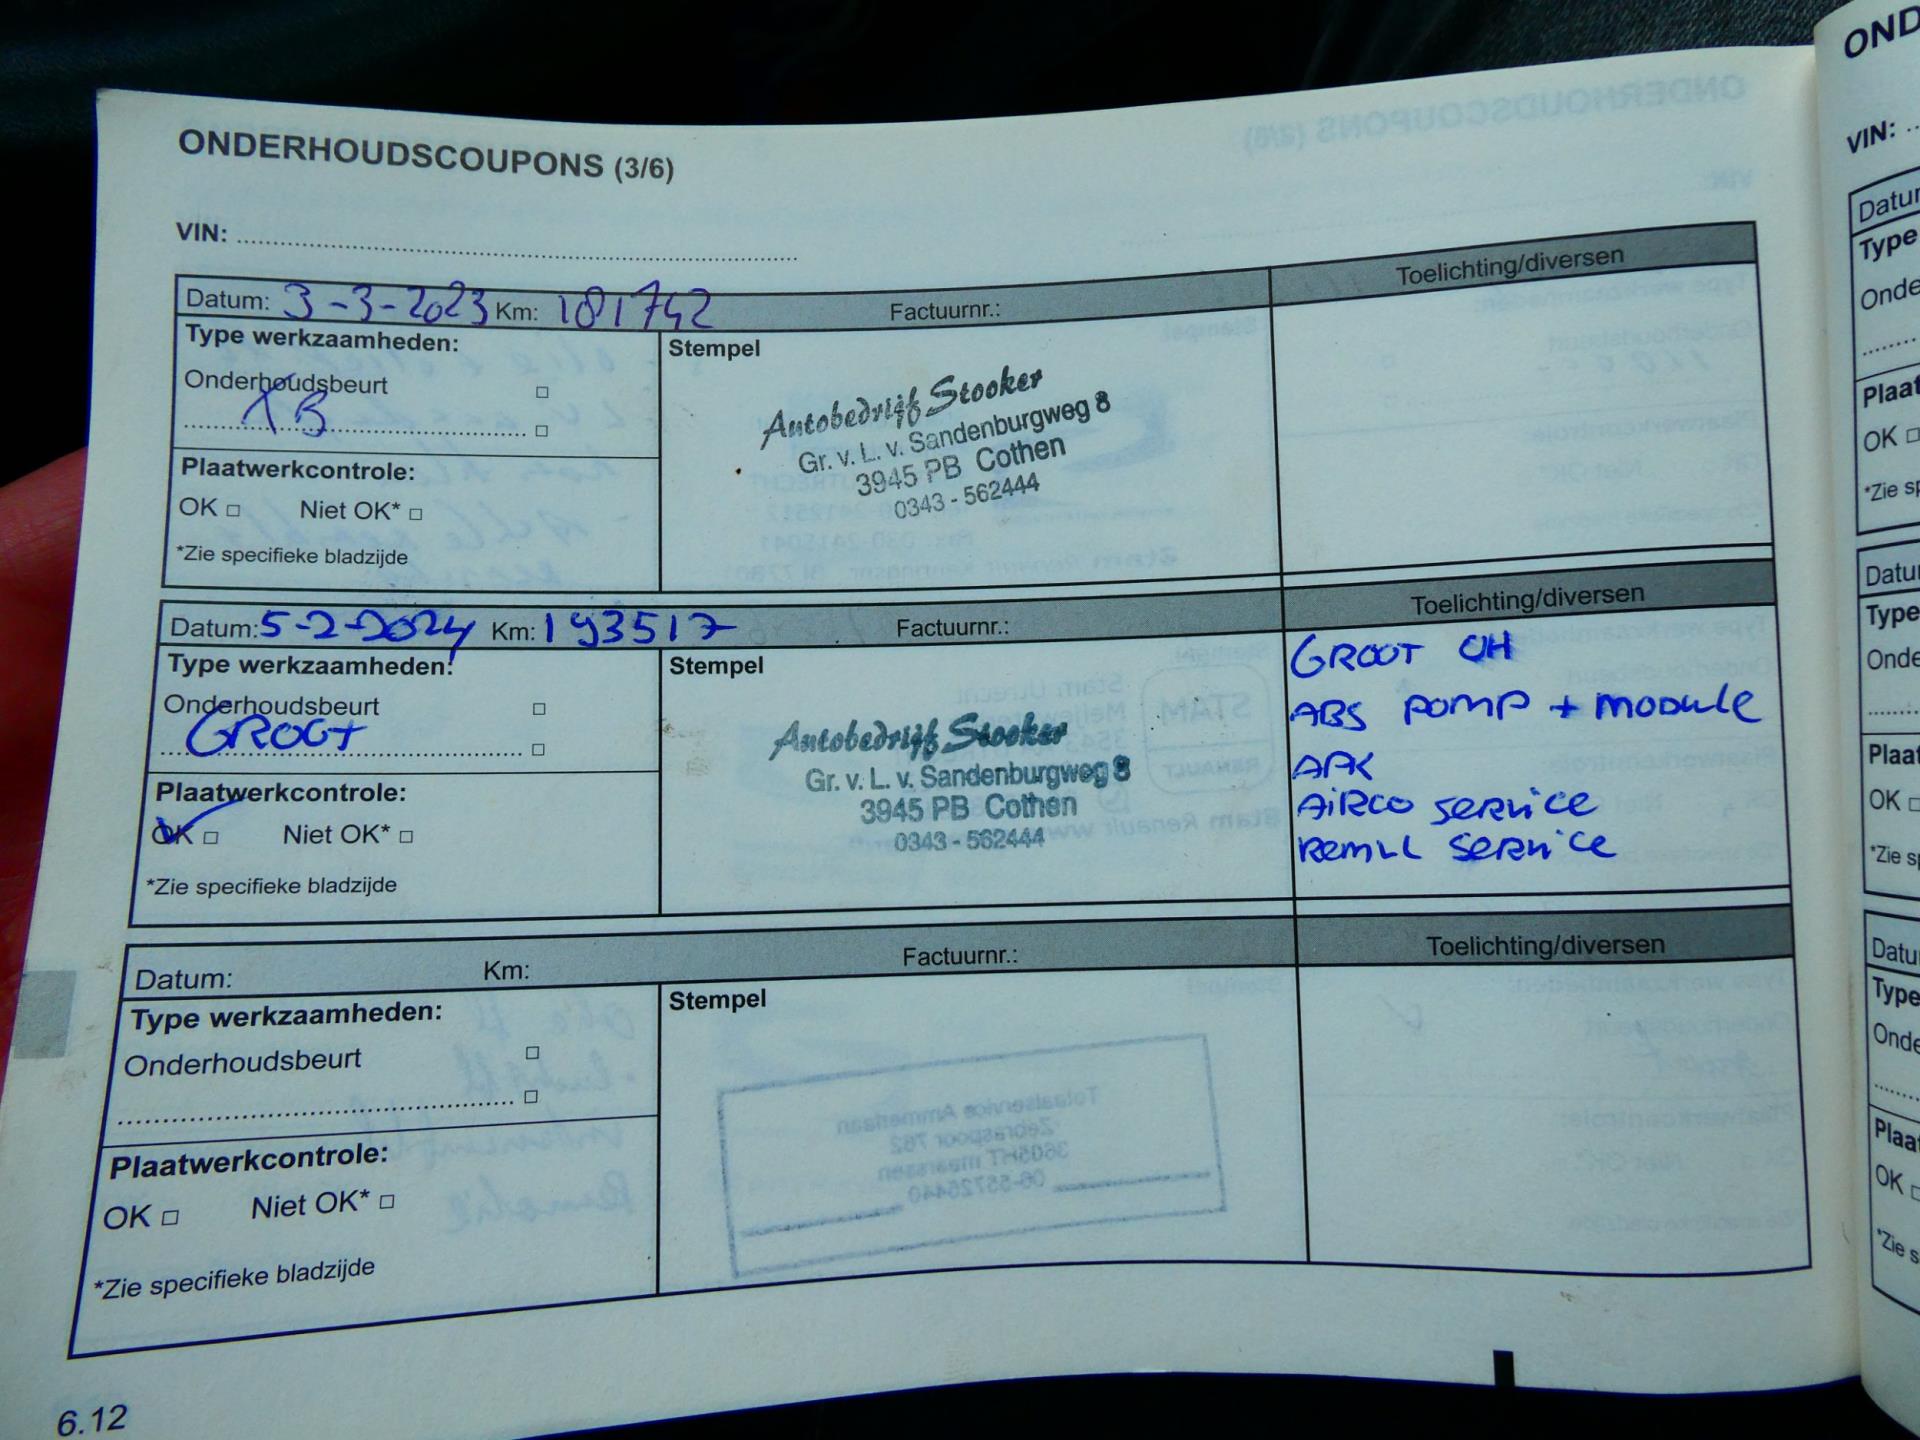 ONDERHOUDSCOUPONS (3/6)
VIN:
Datum: 3-3-2023 Km: 181742 Factuurnr.: Toelichting/diversen
Type werkzaamheden:
Onderhoudsbeurt
Plaatwerkcontrole:
OK Niet OK*
*Zie specifieke bladzijde
Stempel
Autobedrijf Stooker
Gr. v. L. v. Sandenburgweg 8
3945 PB Cothen
0343 - 562444
Datum: 5-2-2024 Km: 193517 Factuurnr.: Toelichting/diversen
Type werkzaamheden:
Onderhoudsbeurt
GROOT
Plaatwerkcontrole:
OK Niet OK*
*Zie specifieke bladzijde
Stempel
Autobedrijf Stooker
Gr. v. L. v. Sandenburgweg 8
3945 PB Cothen
0343 - 562444
GROOT OH
ABS POMP + MODULE
APK
AIRCO SERVICE
REMLL SERVICE
Datum: Km: Factuurnr.: Toelichting/diversen
Type werkzaamheden:
Onderhoudsbeurt
Plaatwerkcontrole:
OK Niet OK*
*Zie specifieke bladzijde
Stempel
6.12
VIN:
Type
OK
Type
OK
Type
OK